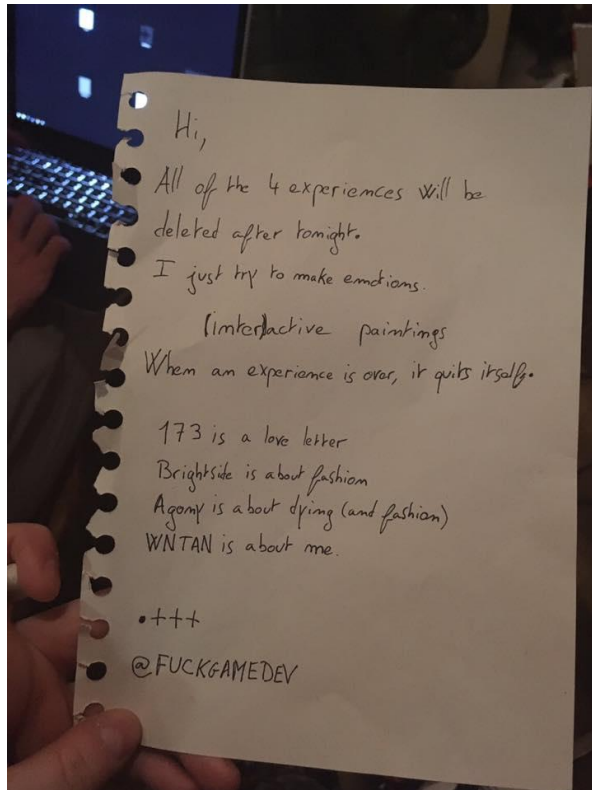 Hi,
All of the 4 experiences will be
deleted after tonight.
I just try to make emotions.
(inter)active paintings
When an experience is over, it quits itself.
173 is a love letter
Brightside is about fashion
Agony is about dying (and fashion)
WNTAN is about me.
•+++
@FUCKGAMEDEV